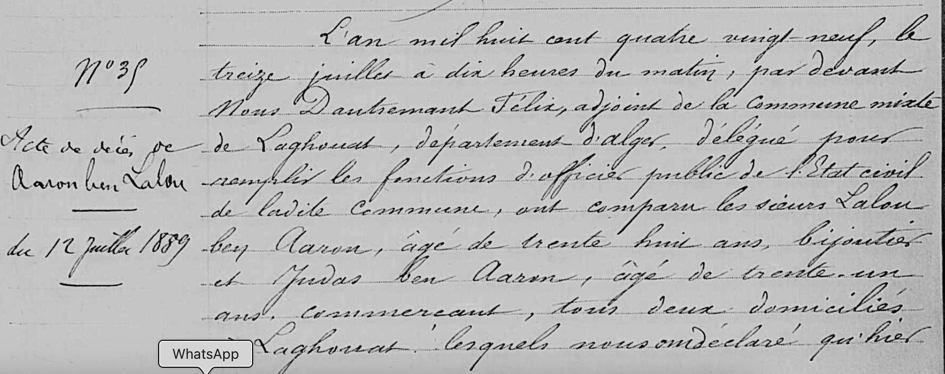 N° 35
Acte de décès de
Aaron ben Lalou
du 12 Juillet 1889
L'an mil huit cent quatre vingt neuf, le
treize juillet à dix heures du matin, par devant
Nous Dautremant Félix, adjoint de la Commune mixte
de Laghouat, département d'alger, délégué pour
remplir les fonctions d'officier public de l'Etat civil
de ladite Commune, ont comparu les sieurs Lalou
ben Aaron, âgé de trente huit ans, bijoutier
et Judas ben Aaron, âgé de trente-un
ans, commerçant, tous deux domiciliés
à Laghouat. lesquels nous ont déclaré qu'hier
WhatsApp